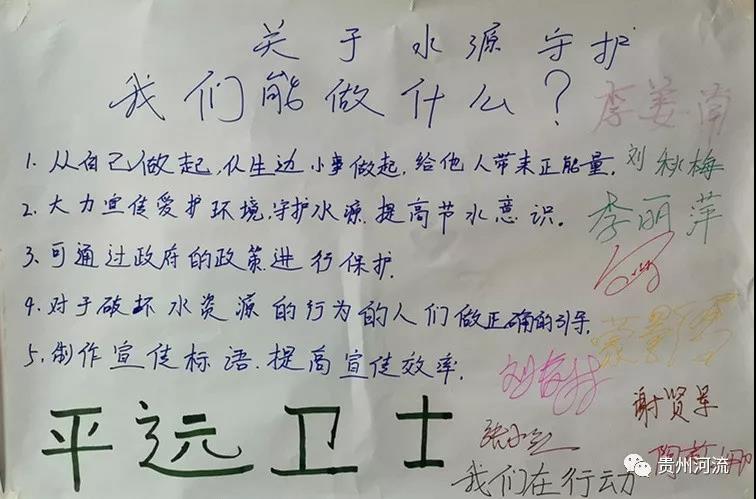 关于水源守护
我们能做什么?
1. 从自己做起,从生边小事做起,给他人带来正能量.
2. 大力宣传爱护环境,守护水源.提高节水意识。
3. 可通过政府的政策进行保护.
4. 对于破坏水资源的行为的人们做正确的引导.
5. 制作宣传标语.提高宣传效率.
李姜南
刘秋梅
李丽萍
谢贤
平远卫士
我们在行动
贵州河流